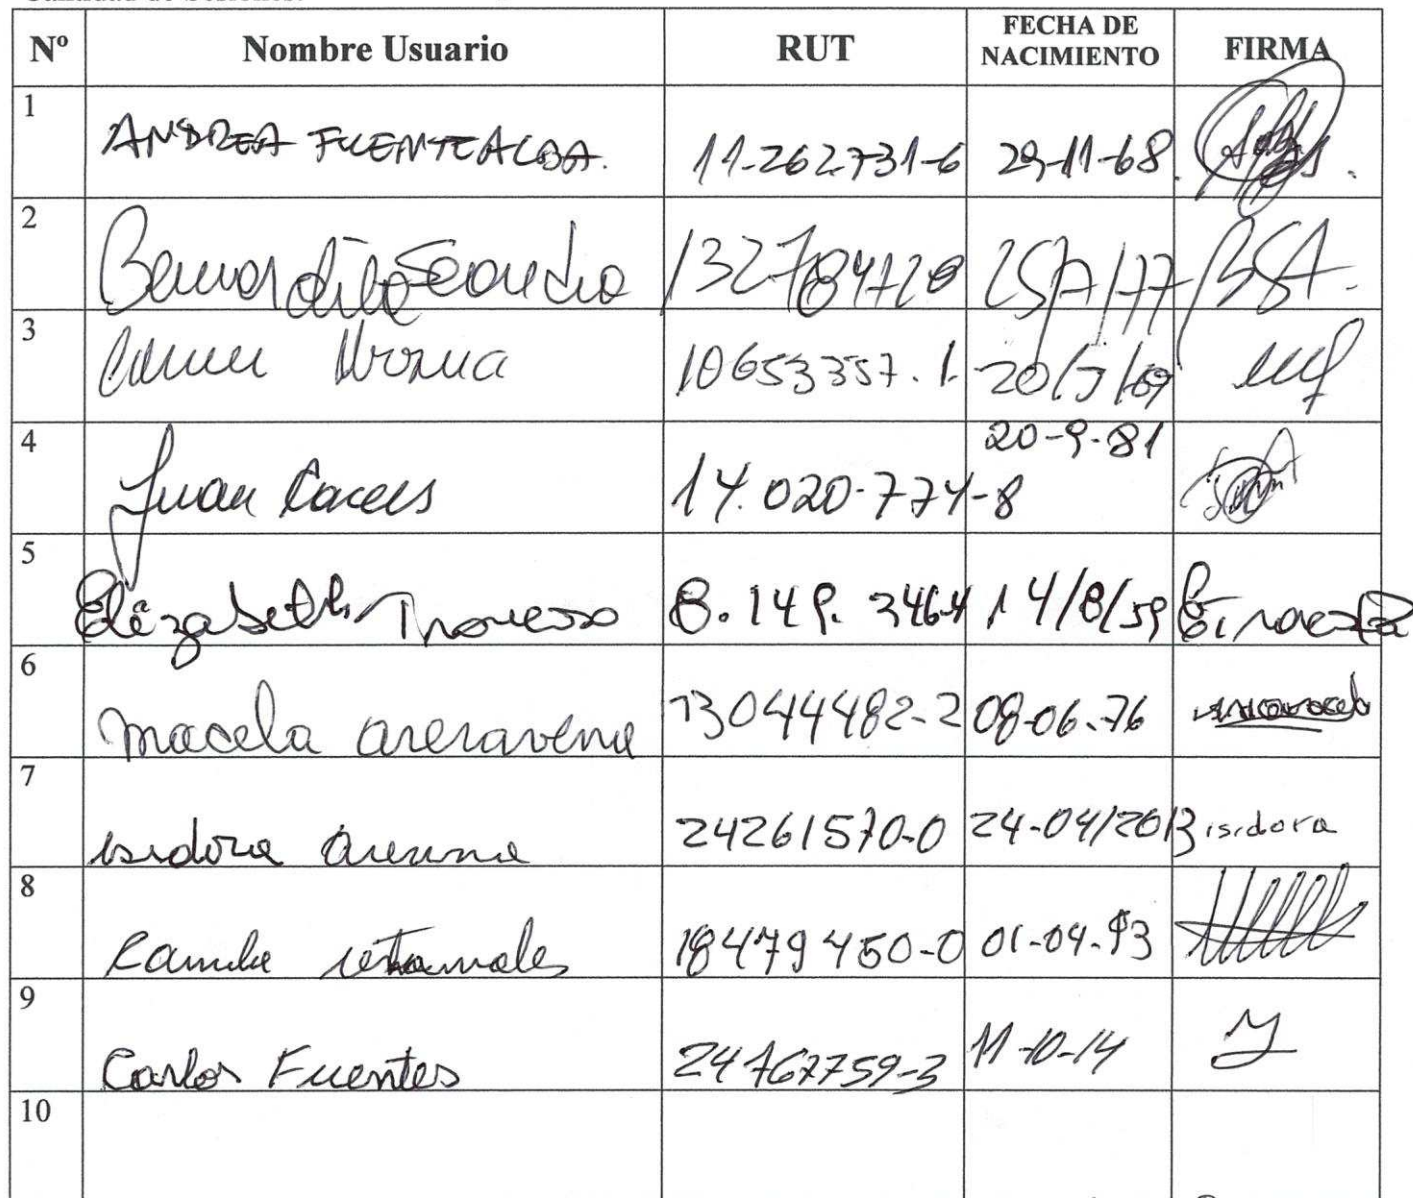 Nº Nombre Usuario RUT FECHA DE NACIMIENTO FIRMA
1 ANDREA FUENTEALBA. 11-262.731-6 29-11-68.
2 Bernardita 132784728 BSA.
3 10653357.1. 20/5/69
4 Juan Caceres 14.020.774-8 20-9-81
5 Elizabeth Traverso 8.149.346-4 14/8/59
6 Macela aravena 13044482-2 08-06-76
7 Isidora 24261570-0 24-04/2013 isidora
8 Camila retamales 18479450-0 01-04-93
9 Carlos Fuentes 24767759-3 11-10-14
10